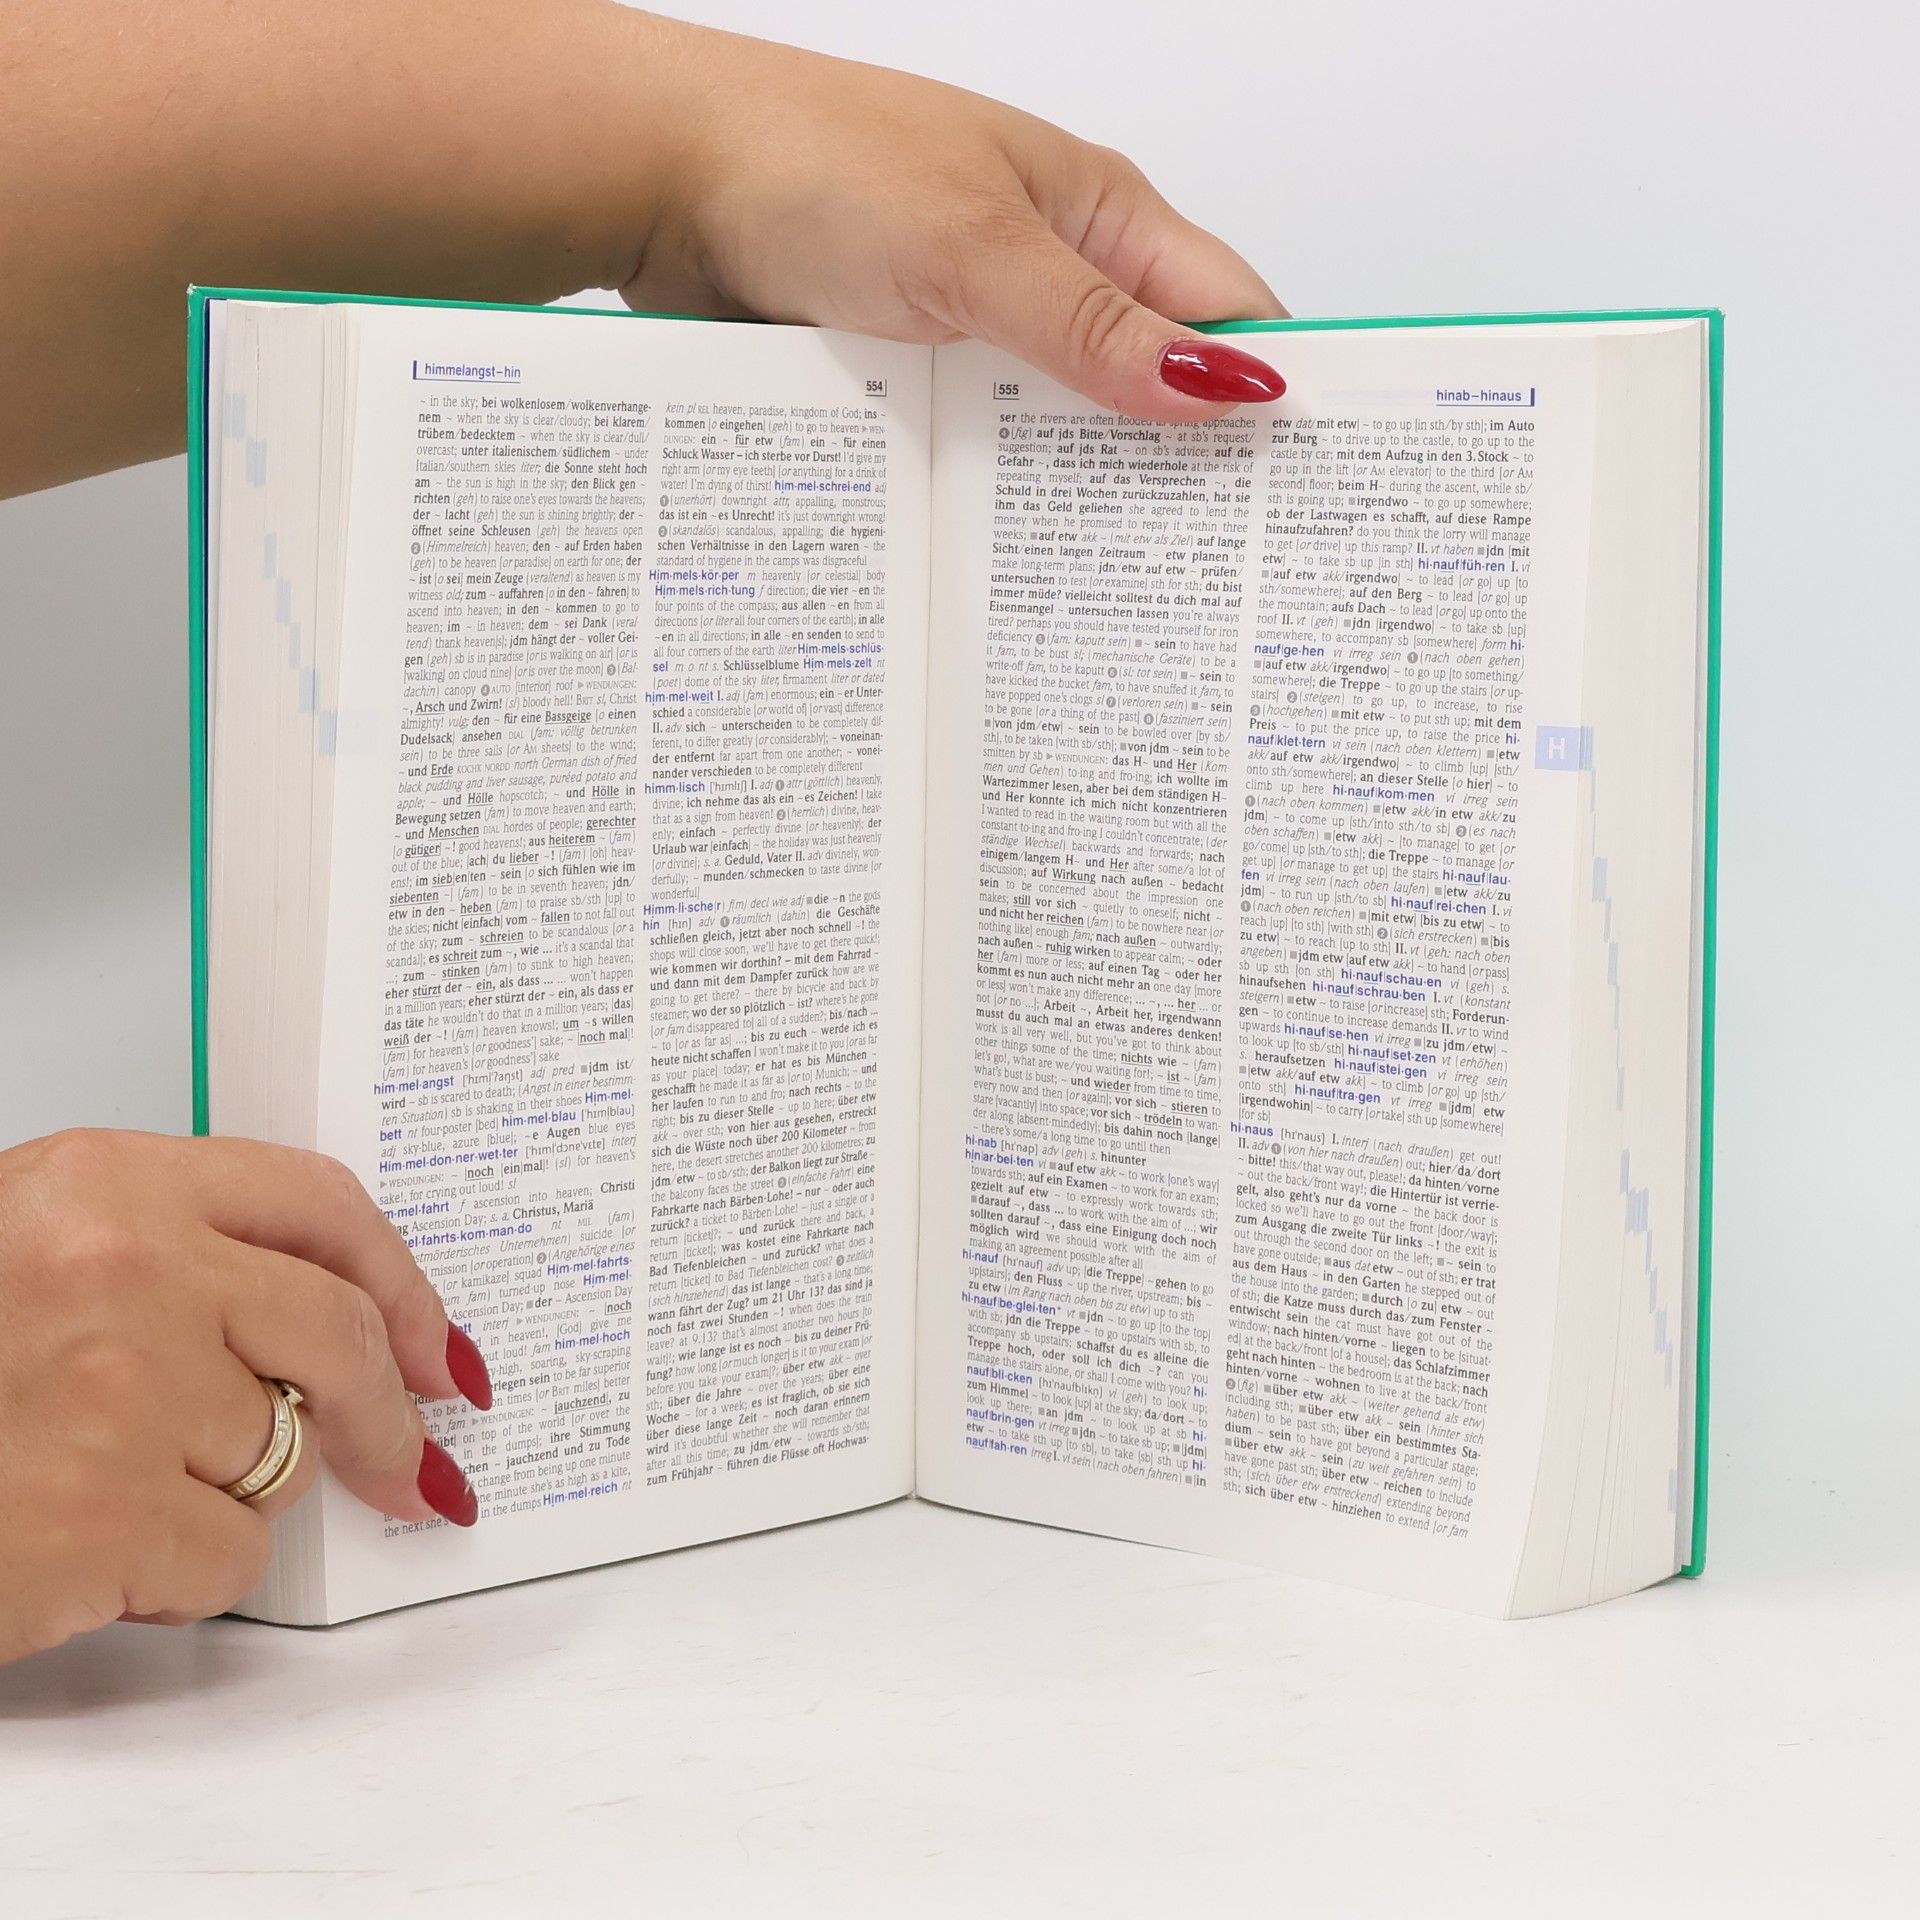 himmelangst–hin
554
~ in the sky; bei wolkenlosem/wolkenverhange-
nem ~ when the sky is clear/cloudy; bei klarem/
trübem/bedecktem ~ when the sky is clear/dull/
overcast; unter italienischem/südlichem ~ under
Italian/southern skies liter; die Sonne steht hoch
am ~ the sun is high in the sky; den Blick gen ~
richten (geh) to raise one's eyes towards the heavens;
der ~ lacht (geh) the sun is shining brightly; der ~
öffnet seine Schleusen (geh) the heavens open
❷ (Himmelreich) heaven; den ~ auf Erden haben
(geh) to be heaven [or paradise] on earth for one; der
~ ist [o sei] mein Zeuge (veraltend) as heaven is my
witness old; zum ~ auffahren [o in den ~ fahren] to
ascend into heaven; in den ~ kommen to go to
heaven; im ~ in heaven; dem ~ sei Dank (veral-
tend) thank heaven[s]; jdm hängt der ~ voller Gei-
gen (geh) sb is in paradise [or is walking on air] [or is
[walking] on cloud nine] [or is over the moon] ❸ (Bal-
dachin) canopy ❹ AUTO [interior] roof ▶ WENDUNGEN:
~, Arsch und Zwirn! (sl) bloody hell! BRIT sl, Christ
almighty! vulg; den ~ für eine Bassgeige [o einen
Dudelsack] ansehen DIAL (fam: völlig betrunken
sein) to be three sails [or AM sheets] to the wind;
~ und Erde KOCHK NORDD north German dish of fried
black pudding and liver sausage, puréed potato and
apple; ~ und Hölle hopscotch; ~ und Hölle in
Bewegung setzen (fam) to move heaven and earth;
~ und Menschen DIAL hordes of people; gerechter
[o gütiger] ~! good heavens!; aus heiterem ~ (fam)
out of the blue; [ach] du lieber ~! (fam) [oh] heav-
ens!; im sieb[en]ten ~ sein [o sich fühlen wie im
siebenten ~] (fam) to be in seventh heaven; jdn/
etw in den ~ heben (fam) to praise sb/sth [up] to
the skies; nicht [einfach] vom ~ fallen to not fall out
of the sky; zum ~ schreien to be scandalous [or a
scandal]; es schreit zum ~, wie ... it's a scandal that
...; zum ~ stinken (fam) to stink to high heaven;
eher stürzt der ~ ein, als dass ... ... won't happen
in a million years; eher stürzt der ~ ein, als dass er
das täte he wouldn't do that in a million years; [das]
weiß der ~! (fam) heaven knows!; um ~s willen
(fam) for heaven's [or goodness'] sake; ~ [noch mal]!
(fam) for heaven's [or goodness'] sake
him·mel·angst ['hɪml̩'ʔaŋst] adj pred ■jdm ist/
wird ~ sb is scared to death; (Angst in einer bestimm-
ten Situation) sb is shaking in their shoes Him·mel·
bett nt four-poster [bed] him·mel·blau ['hɪml̩blau]
adj sky-blue, azure [blue]; ~e Augen blue eyes
Him·mel·don·ner·wet·ter ['hɪml̩'dɔnɐ'vɛtɐ] interj
▶ WENDUNGEN: ~ [noch [ein]mal]! (sl) for heaven's
sake!, for crying out loud! sl
m·mel·fahrt f ascension into heaven; Christi
ag Ascension Day; s. a. Christus, Mariä
el·fahrts·kom·man·do nt MIL (fam)
stmörderisches Unternehmen) suicide [or
mission [or operation] ❷ (Angehörige eines
[or kamikaze] squad Him·mel·fahrts·
um fam) turned-up nose Him·mel·
Ascension Day; ■der ~ Ascension Day
ett interj ▶ WENDUNGEN: ~ [noch
d in heaven!, [God] give me
out loud! fam him·mel·hoch
y-high, soaring, sky-scraping
erlegen sein to be far superior
on times [or BRIT miles] better
th fam ▶ WENDUNGEN: ~ jauchzend, zu
übt on top of the world [or over the
in the dumps]; ihre Stimmung
chen ~ jauchzend und zu Tode
change from being up one minute
one minute she's as high as a kite,
the next she's in the dumps Him·mel·reich nt
kein pl REL heaven, paradise, kingdom of God; ins ~
kommen [o eingehen] (geh) to go to heaven ▶ WEN-
DUNGEN: ein ~ für etw (fam) ein ~ für einen
Schluck Wasser – ich sterbe vor Durst! I'd give my
right arm [or my eye teeth] [or anything] for a drink of
water! I'm dying of thirst! him·mel·schrei·end adj
❶ (unerhört) downright attr, appalling, monstrous;
das ist ein ~es Unrecht! it's just downright wrong!
❷ (skandalös) scandalous, appalling; die hygieni-
schen Verhältnisse in den Lagern waren ~ the
standard of hygiene in the camps was disgraceful
Him·mels·kör·per m heavenly [or celestial] body
Him·mels·rich·tung f direction; die vier ~en the
four points of the compass; aus allen ~en from all
directions [or liter all four corners of the earth]; in alle
~en in all directions; in alle ~en senden to send to
all four corners of the earth liter Him·mels·schlüs·
sel m o nt s. Schlüsselblume Him·mels·zelt nt
(poet) dome of the sky liter, firmament liter or dated
him·mel·weit I. adj (fam) enormous; ein ~er Unter-
schied a considerable [or world of] [or vast] difference
II. adv sich ~ unterscheiden to be completely dif-
ferent, to differ greatly [or considerably]; ~ voneinan-
der entfernt far apart from one another; ~ vonei-
nander verschieden to be completely different
himm·lisch ['hɪmlɪʃ] I. adj ❶ attr (göttlich) heavenly,
divine; ich nehme das als ein ~es Zeichen! I take
that as a sign from heaven! ❷ (herrlich) divine, heav-
enly; einfach ~ perfectly divine [or heavenly]; der
Urlaub war [einfach] ~ the holiday was just heavenly
[or divine]; s. a. Geduld, Vater II. adv divinely, won-
derfully; ~ munden/schmecken to taste divine [or
wonderful]
Himm·li·sche(r) f(m) decl wie adj ■die ~n the gods
hin [hɪn] adv ❶ räumlich (dahin) die Geschäfte
schließen gleich, jetzt aber noch schnell ~! the
shops will close soon, we'll have to get there quick!;
wie kommen wir dorthin? – mit dem Fahrrad ~
und dann mit dem Dampfer zurück how are we
going to get there? – there by bicycle and back by
steamer; wo der so plötzlich ~ ist? where's he gone
[or fam disappeared to] all of a sudden?; bis/nach ...
~ to [or as far as] ...; bis zu euch ~ werde ich es
heute nicht schaffen I won't make it to you [or as far
as your place] today; er hat es bis München ~
geschafft he made it as far as [or to] Munich; ~ und
her laufen to run to and fro; nach rechts ~ to the
right; bis zu dieser Stelle ~ up to here; über etw
akk ~ over sth; von hier aus gesehen, erstreckt
sich die Wüste noch über 200 Kilometer ~ from
here, the desert stretches another 200 kilometres; zu
jdm/etw ~ to sb/sth; der Balkon liegt zur Straße ~
the balcony faces the street ❷ (einfache Fahrt) eine
Fahrkarte nach Bärben-Lohe! – nur ~ oder auch
zurück? a ticket to Bärben-Lohe! – just a single or a
return [ticket]?; ~ und zurück there and back, a
return [ticket]; was kostet eine Fahrkarte nach
Bad Tiefenbleichen ~ und zurück? what does a
return [ticket] to Bad Tiefenbleichen cost? ❸ zeitlich
(sich hinziehend) das ist lange ~ that's a long time;
wann fährt der Zug? um 21 Uhr 13? das sind ja
noch fast zwei Stunden ~! when does the train
leave? at 9.13? that's almost another two hours [to
wait]!; wie lange ist es noch ~ bis zu deiner Prü-
fung? how long [or much longer] is it to your exam [or
before you take your exam]?; über etw akk ~ over
sth; über die Jahre ~ over the years; über eine
Woche ~ for a week; es ist fraglich, ob sie sich
über diese lange Zeit ~ noch daran erinnern
wird it's doubtful whether she will remember that
after all this time; zu jdm/etw ~ towards sb/sth;
zum Frühjahr ~ führen die Flüsse oft Hochwas-
555
hinab–hinaus
ser the rivers are often flooded as spring approaches
❹ (fig) auf jds Bitte/Vorschlag ~ at sb's request/
suggestion; auf jds Rat ~ on sb's advice; auf die
Gefahr ~, dass ich mich wiederhole at the risk of
repeating myself; auf das Versprechen ~, die
Schuld in drei Wochen zurückzuzahlen, hat sie
ihm das Geld geliehen she agreed to lend the
money when he promised to repay it within three
weeks; ■auf etw akk ~ (mit etw als Ziel) auf lange
Sicht/einen langen Zeitraum ~ etw planen to
make long-term plans; jdn/etw auf etw ~ prüfen/
untersuchen to test [or examine] sth for sth; du bist
immer müde? vielleicht solltest du dich mal auf
Eisenmangel ~ untersuchen lassen you're always
tired? perhaps you should have tested yourself for iron
deficiency ❺ (fam: kaputt sein) ■~ sein to have had
it fam, to be bust sl; (mechanische Geräte) to be a
write-off fam, to be kaputt ❻ (sl: tot sein) ■~ sein to
have kicked the bucket fam, to have snuffed it fam, to
have popped one's clogs sl ❼ (verloren sein) ■~ sein
to be gone [or a thing of the past] ❽ (fasziniert sein)
■[von jdm/etw] ~ sein to be bowled over [by sb/
sth], to be taken [with sb/sth]; ■von jdm ~ sein to be
smitten by sb ▶ WENDUNGEN: das H~ und Her (Kom-
men und Gehen) to-ing and fro-ing; ich wollte im
Wartezimmer lesen, aber bei dem ständigen H~
und Her konnte ich mich nicht konzentrieren
I wanted to read in the waiting room but with all the
constant to-ing and fro-ing I couldn't concentrate; (der
ständige Wechsel) backwards and forwards; nach
einigem/langem H~ und Her after some/a lot of
discussion; auf Wirkung nach außen ~ bedacht
sein to be concerned about the impression one
makes; still vor sich ~ quietly to oneself; nicht ~
und nicht her reichen (fam) to be nowhere near [or
nothing like] enough fam; nach außen ~ outwardly;
nach außen ~ ruhig wirken to appear calm; ~ oder
her (fam) more or less; auf einen Tag ~ oder her
kommt es nun auch nicht mehr an one day [more
or less] won't make any difference; ... ~, ... her ... or
not [or no ...]; Arbeit ~, Arbeit her, irgendwann
musst du auch mal an etwas anderes denken!
work is all very well, but you've got to think about
other things some of the time; nichts wie ~ (fam)
let's go!, what are we/you waiting for!; ~ ist ~ (fam)
what's bust is bust; ~ und wieder from time to time,
every now and then [or again]; vor sich ~ stieren to
stare [vacantly] into space; vor sich ~ trödeln to wan-
der along [absent-mindedly]; bis dahin noch [lange]
~ there's/some/a long time to go until then
hi·nab [hɪ'nap] adv (geh) s. hinunter
hin|ar·bei·ten vi ■auf etw akk ~ to work [one's way]
towards sth; auf ein Examen ~ to work for an exam;
gezielt auf etw ~ to expressly work towards sth;
■darauf ~, dass ... to work with the aim of ...; wir
sollten darauf ~, dass eine Einigung doch noch
möglich wird we should work with the aim of
making an agreement possible after all
hi·nauf [hɪ'nauf] adv up; [die Treppe] ~gehen to go
up[stairs]; den Fluss ~ up the river, upstream; bis ~
zu etw (im Rang nach oben bis zu etw) up to sth
hi·nauf|be·glei·ten* vt ■jdn ~ to go up [to the top]
with sb; jdn die Treppe ~ to go upstairs with sb, to
accompany sb upstairs; schaffst du es alleine die
Treppe hoch, oder soll ich dich ~? can you
manage the stairs alone, or shall I come with you? hi·
nauf|bli·cken [hɪ'naufblɪkn̩] vi (geh) to look up;
zum Himmel ~ to look [up] at the sky; da/dort ~ to
look up there; ■an jdm ~ to look up at sb hi·
nauf|brin·gen vt irreg ■jdn ~ to take sb up; ■[jdm]
etw ~ to take sth up [to sb], to take [sb] sth up hi·
nauf|fah·ren irreg I. vi sein (nach oben fahren) ■[in
etw dat/mit etw] ~ to go up [in sth/by sth]; im Auto
zur Burg ~ to drive up to the castle, to go up to the
castle by car; mit dem Aufzug in den 3. Stock ~ to
go up in the lift [or AM elevator] to the third [or AM
second] floor; beim H~ during the ascent, while sb/
sth is going up; ■irgendwo ~ to go up somewhere;
ob der Lastwagen es schafft, auf diese Rampe
hinaufzufahren? do you think the lorry will manage
to get [or drive] up this ramp? II. vt haben ■jdn [mit
etw] ~ to take sb up [in sth] hi·nauf|füh·ren I. vi
■[auf etw akk/irgendwo] ~ to lead [or go] up [to
sth/somewhere]; auf den Berg ~ to lead [or go] up
the mountain; aufs Dach ~ to lead [or go] up onto the
roof II. vt (geh) ■jdn [irgendwo] ~ to take sb [up]
somewhere, to accompany sb [somewhere] form hi·
nauf|ge·hen vi irreg sein ❶ (nach oben gehen)
■[auf etw akk/irgendwo] ~ to go up [to something/
somewhere]; die Treppe ~ to go up the stairs [or up-
stairs] ❷ (steigen) to go up, to increase, to rise
❸ (hochgehen) ■mit etw ~ to put sth up; mit dem
Preis ~ to put the price up, to raise the price hi·
nauf|klet·tern vi sein (nach oben klettern) ■[etw
akk/auf etw akk/irgendwo] ~ to climb [up] [sth/
onto sth/somewhere]; an dieser Stelle [o hier] ~ to
climb up here hi·nauf|kom·men vi irreg sein
❶ (nach oben kommen) ■[etw akk/in etw akk/zu
jdm] ~ to come up [sth/into sth/to sb] ❷ (es nach
oben schaffen) ■[etw akk] ~ [to manage] to get [or
go/come] up [sth/to sth]; die Treppe ~ to manage [or
get up] [or manage to get up] the stairs hi·nauf|lau·
fen vi irreg sein (nach oben laufen) ■[etw akk/zu
jdm] ~ to run up [sth/to sb] hi·nauf|rei·chen I. vi
❶ (nach oben reichen) ■[mit etw] [bis zu etw] ~ to
reach [up] [to sth] [with sth] ❷ (sich erstrecken) ■[bis
zu etw] ~ to reach [up to sth] II. vt (geh: nach oben
angeben) ■jdm etw [auf etw akk] ~ to hand [or pass]
sb up sth [on sth] hi·nauf|schau·en vi (geh) s.
hinaufsehen hi·nauf|schrau·ben I. vt (konstant
steigern) ■etw ~ to raise [or increase] sth; Forderun-
gen ~ to continue to increase demands II. vr to wind
upwards hi·nauf|se·hen vi irreg ■[zu jdm/etw] ~
to look up [to sb/sth] hi·nauf|set·zen vt (erhöhen)
s. heraufsetzen hi·nauf|stei·gen vi irreg sein
■[etw akk/auf etw akk] ~ to climb [or go] up [sth/
onto sth] hi·nauf|tra·gen vt irreg ■[jdm] etw
[irgendwohin] ~ to carry [or take] sth up [somewhere]
[for sb]
hi·naus [hɪ'naus] I. interj (nach draußen) get out!
II. adv ❶ (von hier nach draußen) out; hier/da/dort
~ bitte! this/that way out, please!; da hinten/vorne
~ out the back/front way!; die Hintertür ist verrie-
gelt, also geht's nur da vorne ~ the back door is
locked so we'll have to go out the front [door/way];
zum Ausgang die zweite Tür links ~! the exit is
out through the second door on the left; ■~ sein to
have gone outside; ■aus dat etw ~ out of sth; er trat
aus dem Haus ~ in den Garten he stepped out of
the house into the garden; ■durch [o zu] etw ~ out
of sth; die Katze muss durch das/zum Fenster ~
entwischt sein the cat must have got out of the
window; nach hinten/vorne ~ liegen to be [situat-
ed] at the back/front [of a house]; das Schlafzimmer
geht nach hinten ~ the bedroom is at the back; nach
hinten/vorne ~ wohnen to live at the back/front
❷ (fig) ■über etw akk ~ (weiter gehend als etw)
including sth; ■über etw akk ~ sein (hinter sich
haben) to be past sth; über ein bestimmtes Sta-
dium ~ sein to have got beyond a particular stage;
■über etw akk ~ sein (zu weit gefahren sein) to
have gone past sth; über etw ~ reichen to include
sth; (sich über etw erstreckend) extending beyond
sth; sich über etw ~ hinziehen to extend [or fam
H